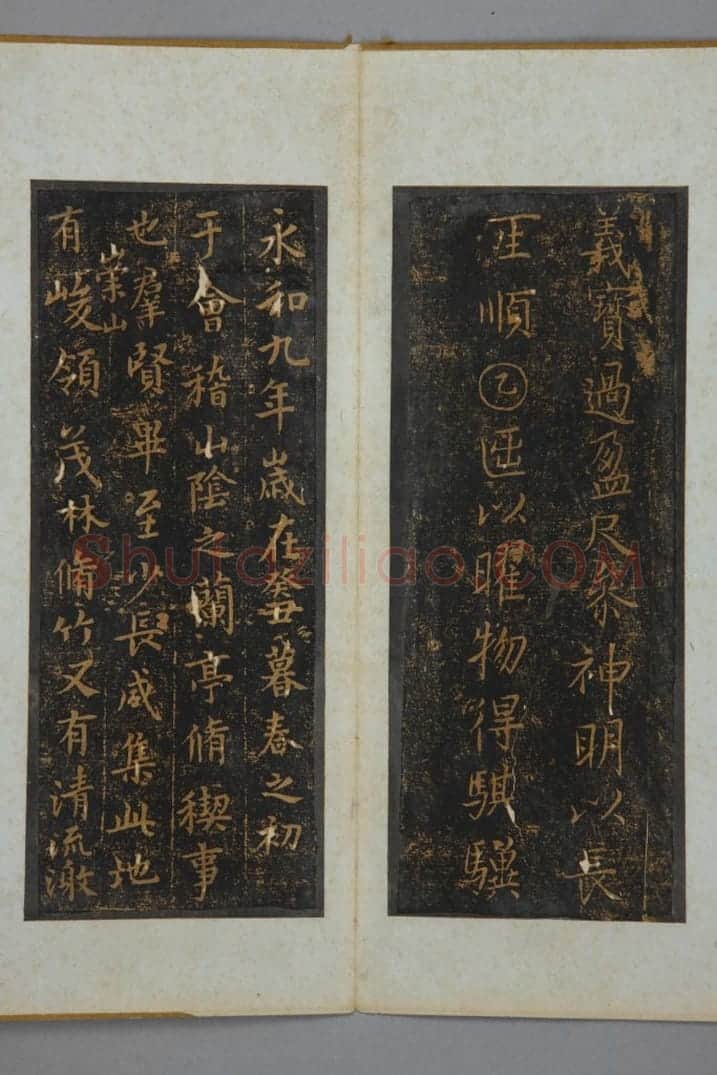 義寶過盈尺參神明以長
匡順乙匼以唯物得騏驥
永和九年歲在癸丑暮春之初
于會稽山陰之蘭亭脩稧事
也羣賢畢至少長咸集此地
有崇山峻領茂林脩竹又有清流激
Shufaziliao.COM